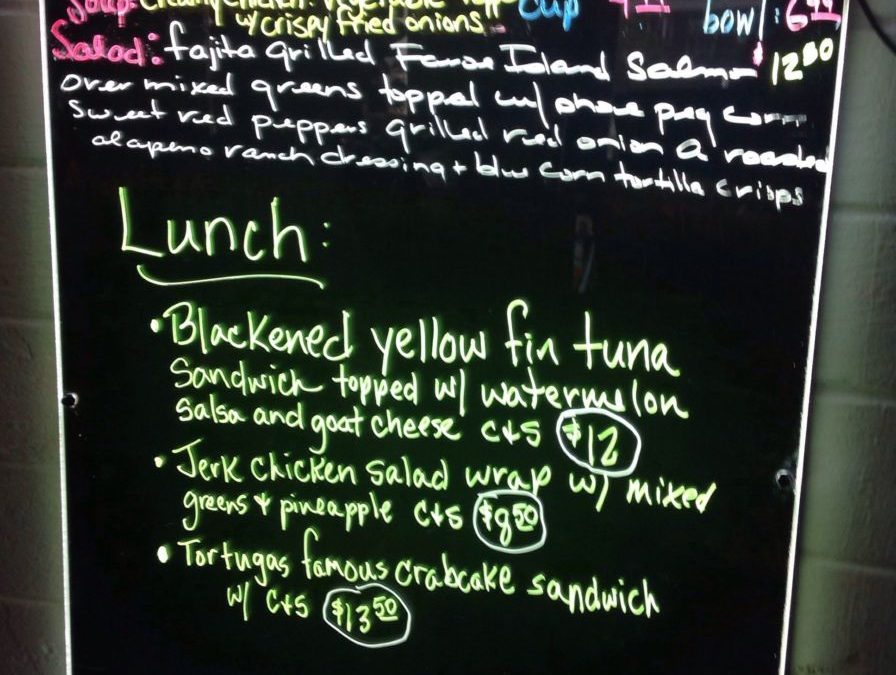 Soup: Creamy chicken + vegetable
w/ crispy fried onions cup bowl: 6
Salad: fajita grilled Faroe Island Salmon $12.50
over mixed greens topped w/ shoe peg corn
Sweet red peppers grilled red onion a roasted
jalapeno ranch dressing + blue corn tortilla crisps
Lunch:
• Blackened yellow fin tuna
Sandwich topped w/ watermelon
salsa and goat cheese c+s $12
• Jerk chicken salad wrap w/ mixed
greens + pineapple c+s $8.50
• Tortugas famous crabcake sandwich
w/ c+s $13.50